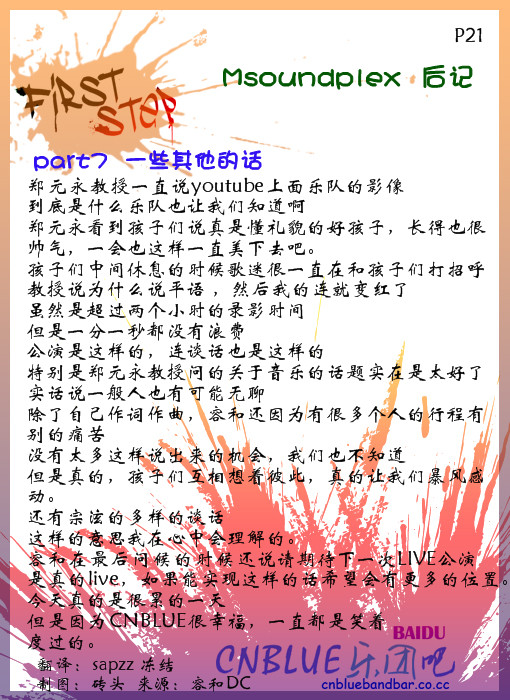 P21
FIRST STEP
Msoundplex 后记
part7 一些其他的话
郑元永教授一直说youtube上面乐队的影像
到底是什么乐队也让我们知道啊
郑元永看到孩子们说真是懂礼貌的好孩子，长得也很
帅气，一会也这样一直美下去吧。
孩子们中间休息的时候歌迷很一直在和孩子们打招呼
教授说为什么说平语 ，然后我的连就变红了
虽然是超过两个小时的录影时间
但是一分一秒都没有浪费
公演是这样的，连谈话也是这样的
特别是郑元永教授问的关于音乐的话题实在是太好了
实话说一般人也有可能无聊
除了自己作词作曲，容和还因为有很多个人的行程有
别的痛苦
没有太多这样说出来的机会，我们也不知道
但是真的，孩子们互相想着彼此，真的让我们暴风感
动。
还有宗泫的多样的谈话
这样的意思我在心中会理解的。
容和在最后问候的时候还说请期待下一次LIVE公演
是真的live，如果能实现这样的话希望会有更多的位置。
今天真的是很累的一天
但是因为CNBLUE很幸福，一直都是笑着
度过的。
翻译：sapzz 冻结
制图：砖头 来源：容和DC
BAIDU
CNBLUE乐团吧
cnbluebandbar.co.cc